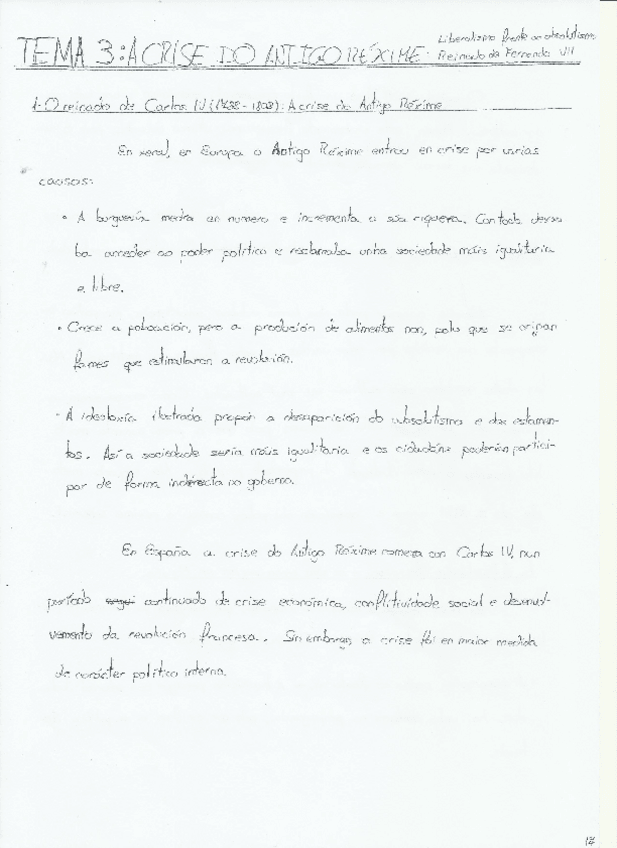 TEMA 3: A CRISE DO ANTIGO RÉXIME. Liberalismo frente ao absolutismo
Reinado de Fernando VII
1- O reinado de Carlos IV (1788-1808): A crise do Antigo Réxime
En xeral, en Europa o Antigo Réxime entrou en crise por varias
causas:
• A burguesía medra en número e incrementa a súa riqueza. Con todo desexa
ba acceder ao poder político e reclamaba unha sociedade máis igualitaria
e libre.
• Crece a poboación, pero a produción de alimentos non, polo que se orixinan
fames que estimularon a revolución.
• A ideoloxía ilustrada propón a desaparición do absolutismo e dos estamen-
tos. Así a sociedade sería máis igualitaria e os cidadáns poderían partici-
par de forma indirecta no goberno.
En España a crise do Antigo Réxime comeza con Carlos IV, nun
período continuado de crise económica, conflitividade social e
da revolución francesa. Sin embargo, a crise foi en maior medida
de carácter político interno.
17